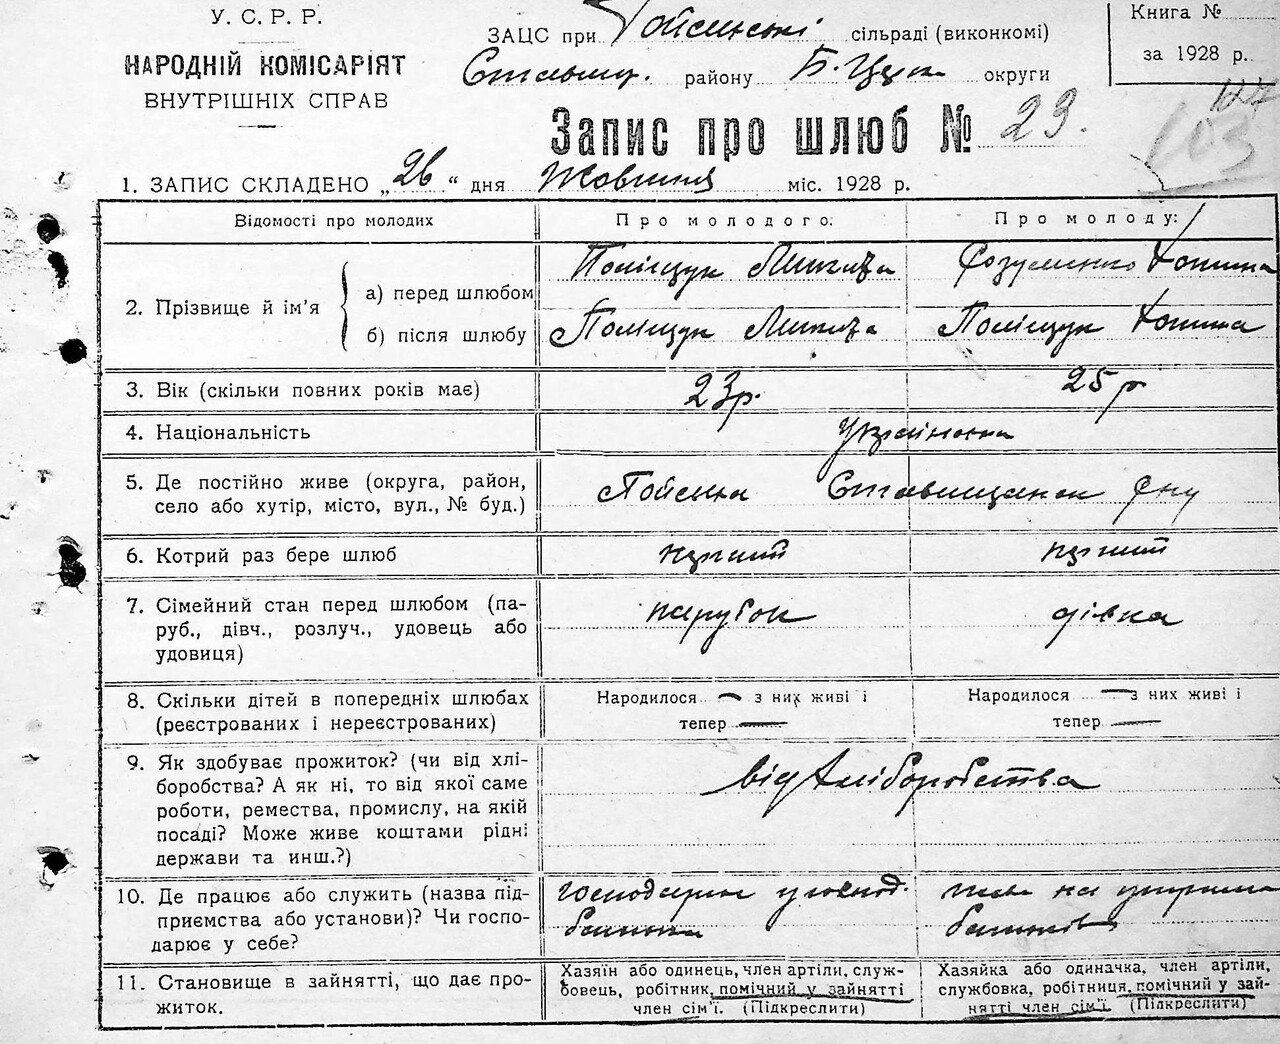 У. С. Р. Р.
НАРОДНІЙ КОМІСАРІЯТ
ВНУТРІШНІХ СПРАВ
ЗАЦС при Гойсинські сільраді (виконкомі)
району Б. Церк. округи
Книга №
за 1928 р.
Запис про шлюб № 23.
103
1. ЗАПИС СКЛАДЕНО „26“ дня Жовтня міс. 1928 р.
Відомості про молодих
Про молодого:
Про молоду:
2. Прізвище й ім’я
а) перед шлюбом
Поліщук Микита
Розуменко
б) після шлюбу
Поліщук Микита
Поліщук
3. Вік (скільки повних років має)
23р.
25р
4. Національність
Українська
5. Де постійно живе (округа, район,
село або хутір, місто, вул., № буд.)
6. Котрий раз бере шлюб
перший
перший
7. Сімейний стан перед шлюбом (па-
руб., дівч., розлуч., удовець або
удовиця)
парубок
дівка
8. Скільки дітей в попередніх шлюбах
(реєстрованих і нереєстрованих)
Народилося — з них живі і
тепер —
Народилося — з них живі і
тепер —
9. Як здобуває прожиток? (чи від хлі-
боробства? А як ні, то від якої саме
роботи, ремества, промислу, на якій
посаді? Може живе коштами рідні
держави та инш.?)
від хліборобства
10. Де працює або служить (назва під-
приємства або установи)? Чи госпо-
дарює у себе?
господарює у господ.
батька
живе на
батьків
11. Становище в зайнятті, що дає про-
житок.
Хазяїн або одинець, член артіли, служ-
бовець, робітник, помічний у зайнятті
член сім’ї. (Підкреслити)
Хазяйка або одиначка, член артіли,
службовка, робітниця, помічний у зай-
нятті член сім’ї (Підкреслити)